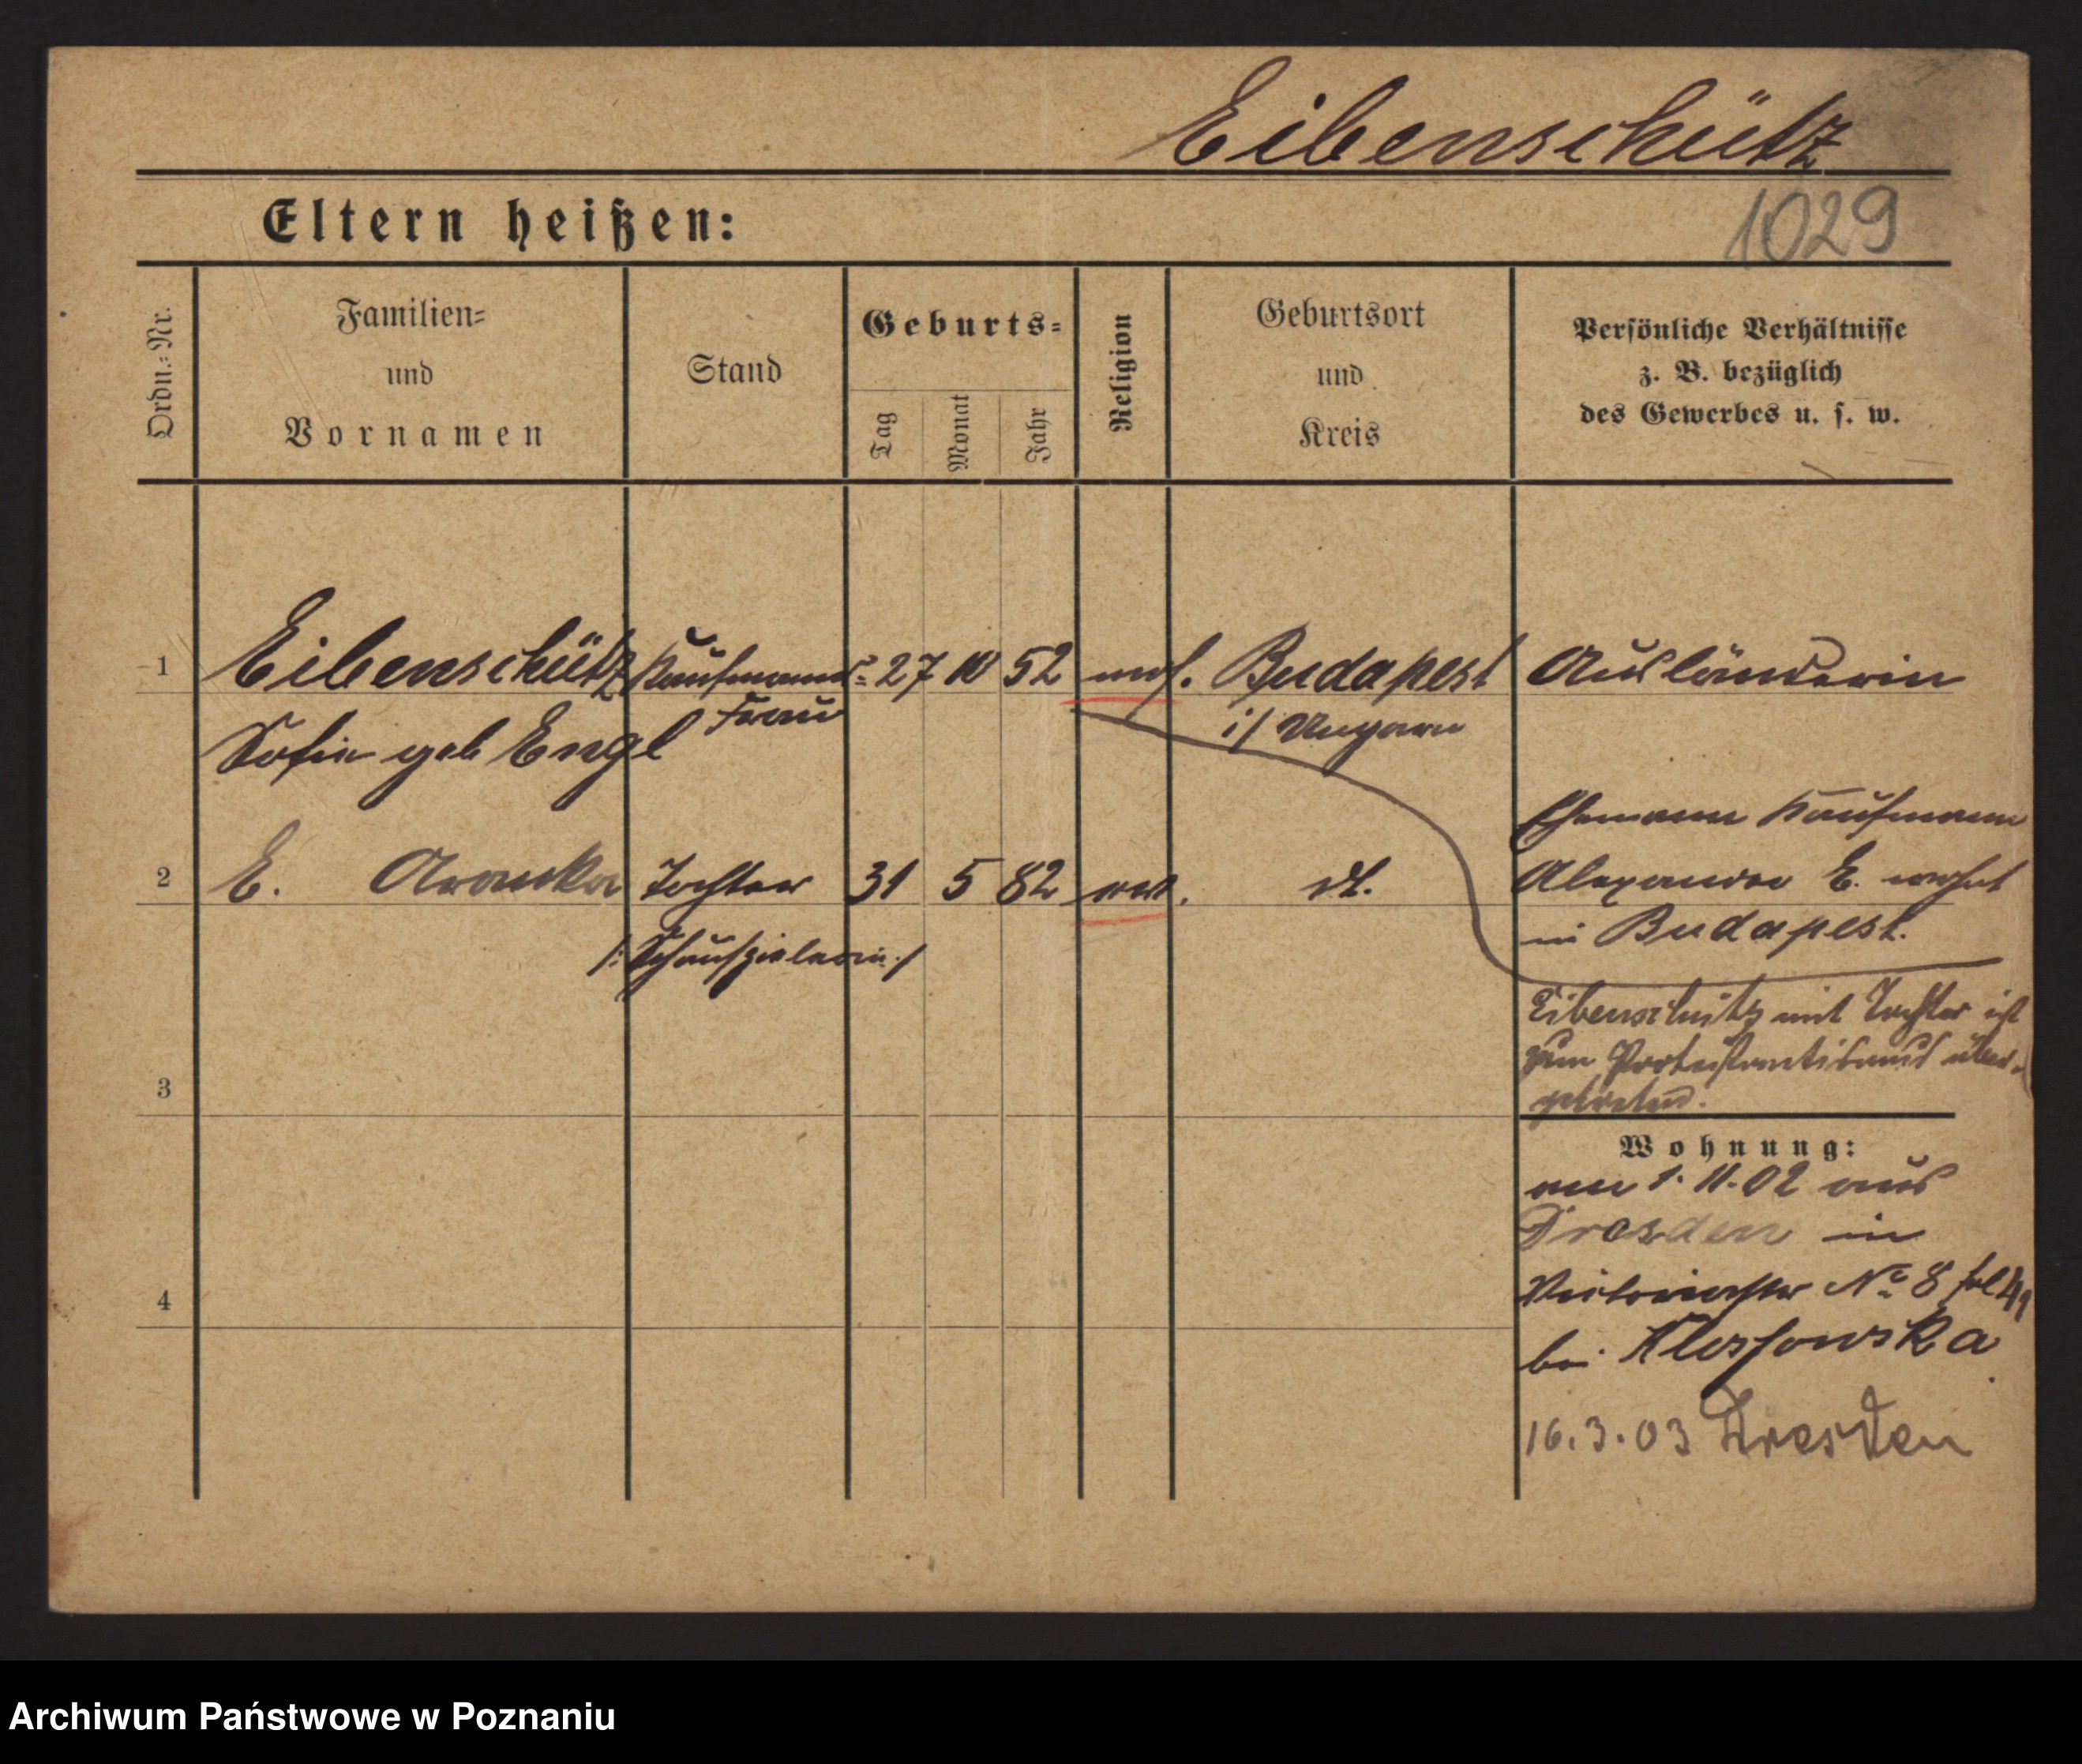 Eibenschütz
1029
Eltern heißen:
Ordn.-Nr.
Familien-
und
Vornamen
Stand
Geburts-
Tag
Monat
Jahr
Religion
Geburtsort
und
Kreis
Persönliche Verhältnisse
z. B. bezüglich
des Gewerbes u. s. w.
1 Eibenschütz Kaufmanns- 27 10 52 mos. Budapest Ausländerin
Frau i/ Ungarn
Sofie geb Engl
Ehemann Kaufmann
2 E. Aranka Tochter 31 5 82 dt. Alexander E. wohnt
in Budapest.
/: Schauspielerin :/
Eibenschütz mit Tochter ist
zum Protestantismus über-
getreten.
3
Wohnung:
am 1. 11. 02 aus
Dresden in
4 Victoriastr No 8
bei
16.3.03 Dresden
Archiwum Państwowe w Poznaniu